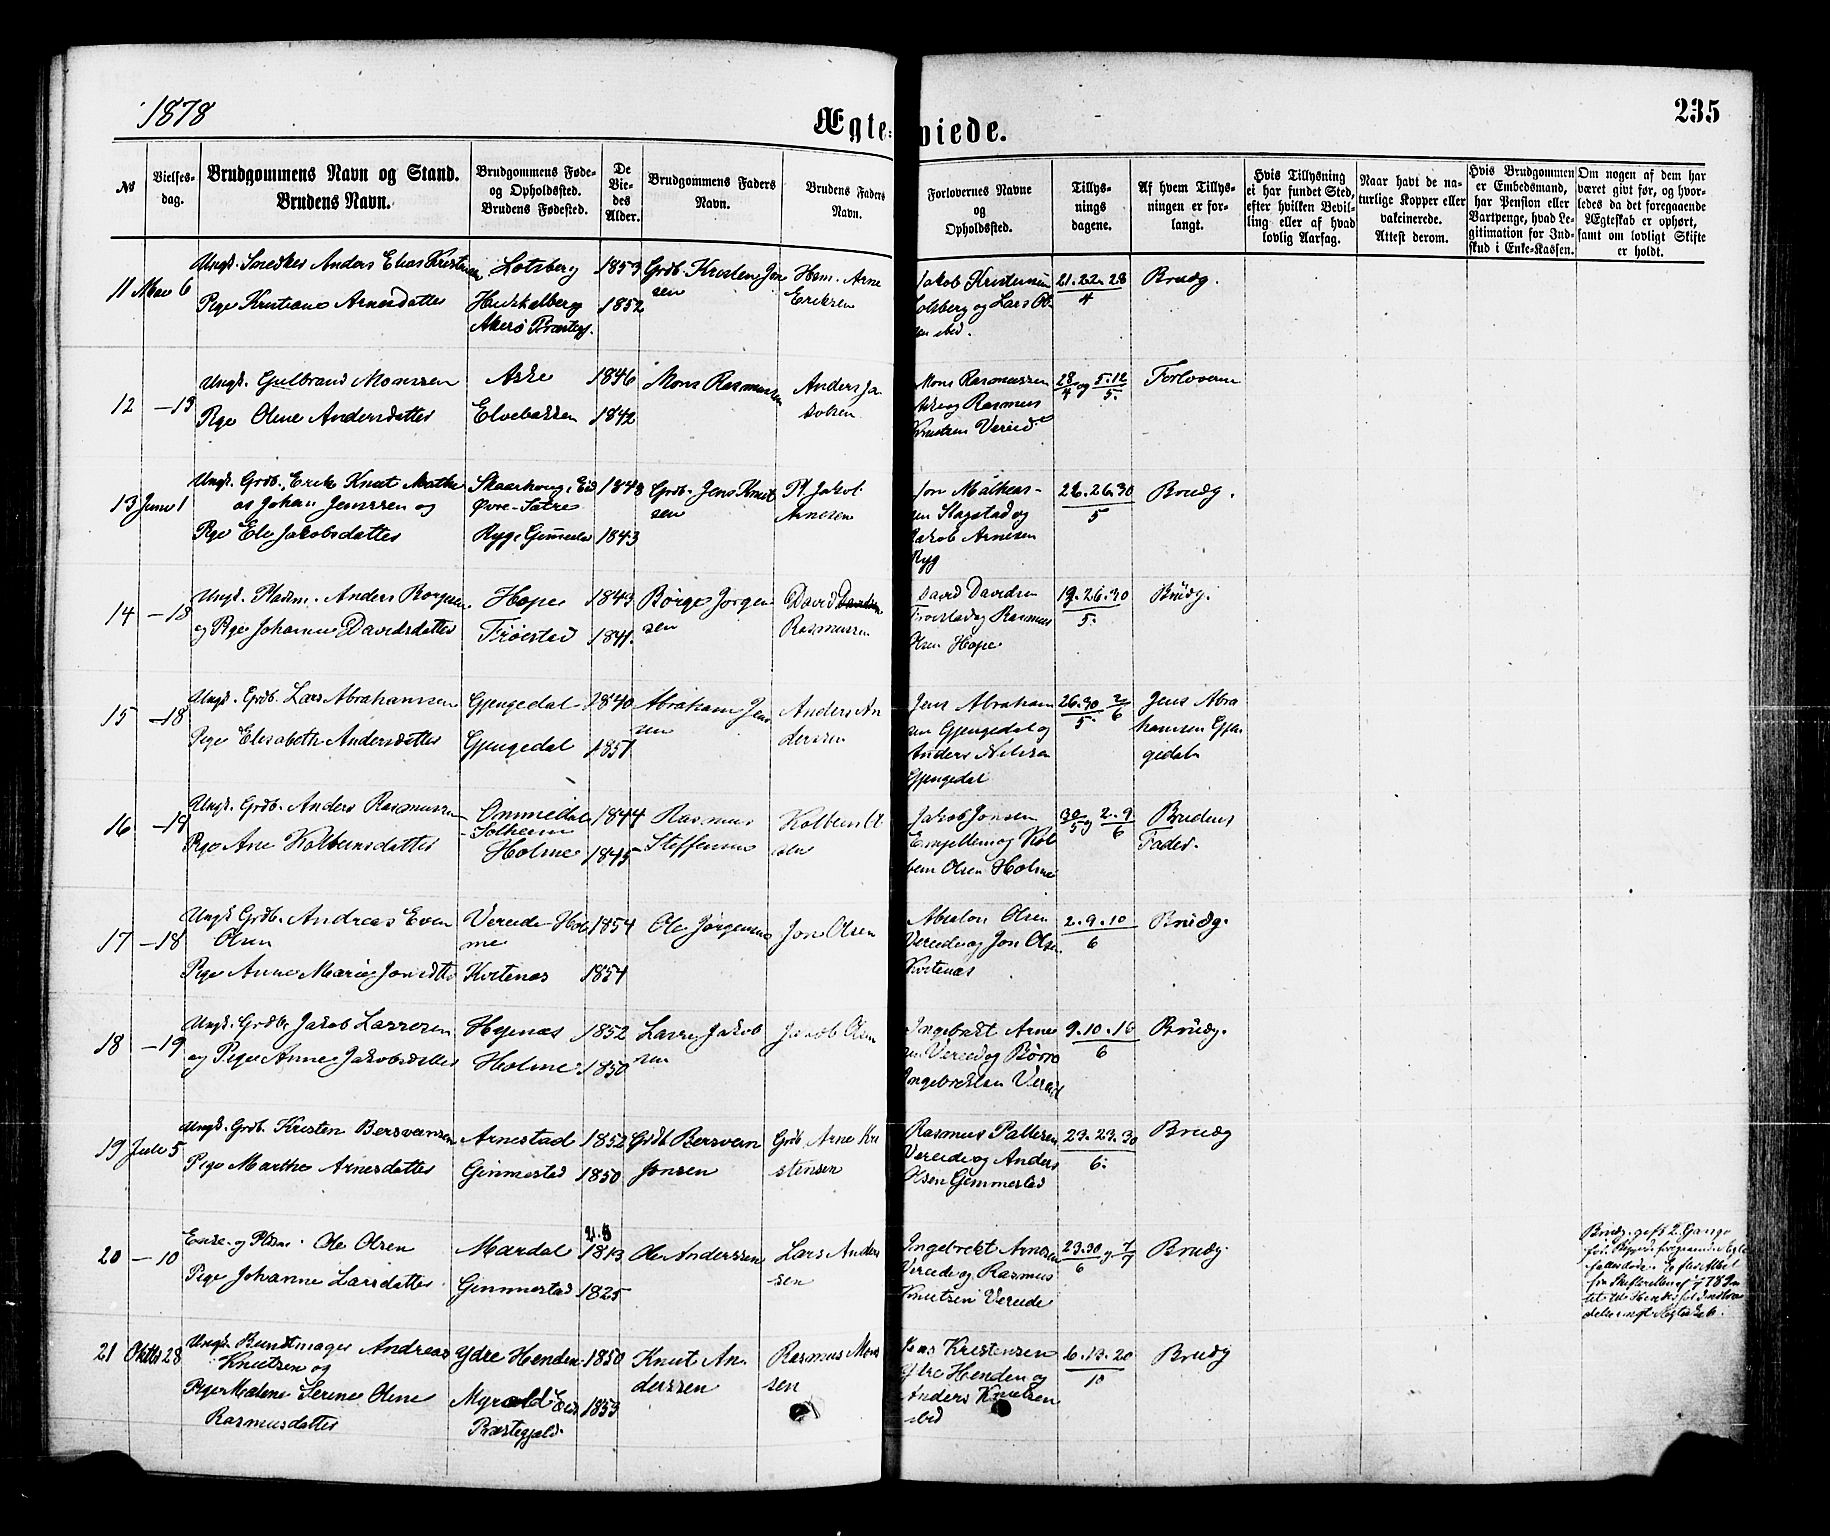 1878
Ægteviede.
235
No
Vielses-
dag.
Brudgommens Navn og Stand.
Brudens Navn.
Brudgommens Føde-
og Opholdssted.
Brudens Fødested.
De
Vie-
des
Alder.
Brudgommens Faders
Navn.
Brudens Faders
Navn.
Forlovernes Navne
og
Opholdssted.
Tillys-
nings
dagene.
Af hvem Tillys-
ningen er for-
langt.
Hvis Tillysning
ei har fundet Sted,
efter hvilken Bevil-
ling eller af hvad
lovlig Aarsag.
Naar havt de na-
turlige Kopper eller
vakcinerede.
Attest derom.
Hvis Brudgommen
er Embedsmand,
har Pension eller
Vartpenge, hvad Le-
gitimation for Ind-
skud i Enke-Kassen.
Om nogen af dem har
været givt før, og hvor-
ledes da det foregaaende
Ægteskab er ophørt,
samt om lovligt Skifte
er holdt.
11 Mai 6
Ungk. Snedker Anders Elias Kristensen
Pige Kristiane Arnesdatter
Lotsberg
Akerø Præstegj.
1853
1852
Grdb. Kristen Jon
sen
Hsm. Arne
Eriksen
Jakob Kristensen
Lotsberg og Lars Ol
sen ibd.
21. 22. 28
4
Brudg.
12 –13
Ungk. Gulbrand Monssen
Pige Oline Andersdatter
Aske
Elvebakken
1846
1842
Mons Rasmussen
Anders Ja
kobsen
Mons Rasmussen
Aske og Rasmus
Knutsen Vereid
28/4 og 5.12/5.
Forloverne
13 Juni 1
Ungk. Grdb. Erik Knut Mathi
as Johan Jenssen og
Pige Eli Jakobsdatter
Skaarhoug, Eid
Øvre-Sætre
Ryg, Gimmestad
1848
1843
Grdb. Jens Knut
sen
Pl. Jakob
Arnesen
Jon Mathias-
sen Stagstad og
Jakob Arnesen
Ryg
26.30
5
Brudg.
14 –18
Ungk. Pladsm. Anders Børgesen
og Pige Johanne Davidsdatter
Hope
Frøestad
1843
1841.
Børge Jørgen
sen
David Davidsen
Rasmussen
David Davidsen
Frøestad og Rasmus
Olsen Hope
19. 26. 30
5.
Brudg.
15 –18
Ungk. Grdb. Lars Abrahamssen
Pige Elisabeth Andersdatter
Gjengedal
Gjengedal
1840
1851
Abraham Jens
sen
Anders An
derssen
Jens Abraham
sen Gjengedal og
Anders Nilssen
Gjengedal
26.30/5. 2/6
Jens Abra
hamsen Gjen
gedal
16 –18
Ungk. Grdb. Anders Rasmussen
Pige Ane Kolbeinsdatter
Ommedal
Solheim
Holme
1844
1845
Rasmus
Steffensen
Kolbein Ol
sen
Jakob Jonsen
Emjellem og Kol
bein Olsen Holme
30/5 og 2.9/6
Brudens
Fader.
17 –18
Ungk. Grdb. Andreas Even
Olsen
Pige Anne Marie Jonsdtter
Vereide-Hol
me
Kvitenæs
1854
1854
Ole Jørgensen
Jon Olsen
Absalon Olsen
Vereide og Jon Olsen
Kvitenæs
2. 9. 10
6
Brudg.
18 –19
Ungk. Grdb. Jakob Larresen
og Pige Anne Jakobsdatter
Hyenæs
Holme
1852
1850
Larre Jakob
sen
Jakob Olsen
Ingebrikt Arne
sen Vereid og Børre
Ingebriktsen Vereid
9. 10. 16
6
Brudg.
19 Juli 5
Ungk. Grdb. Kristen Bersvensen
Pige Marthe Arnesdatter
Arnestad
Gimmestad
1852
1850
Grdb. Bersven
Jonsen
Grdb. Arne Kri
stensen
Rasmus Pallesen
Vereide og Anders
Olsen Gimmestad
23. 23. 30
6.
Brudg
20 –10
Enke- og Pladsm. Ole Olsen
Pige Johanne Larsdatter
Mardal
Gimmestad
1813
1825
Ole Anderssen
Lars Anders
sen
Ingebrikt Arnesen
Vereide og Rasmus
Knutsen Vereide
23.30/6 og 7/7
Brudg.
Brudg. gift 2 Gange
før.
21 Oktbr 28
Ungk. Buntmager Andreas
Knutsen og
Pige Malene Serine Oline
Rasmusdatter
Ydre Henden
Myrold Eids
Præstegjæld.
1850
1853
Knut An
derssen
Rasmus Mons
sen
Jens Kristensen
Ytre Henden og
Anders Knutsen
ibid
6. 13. 20
10
Brudg